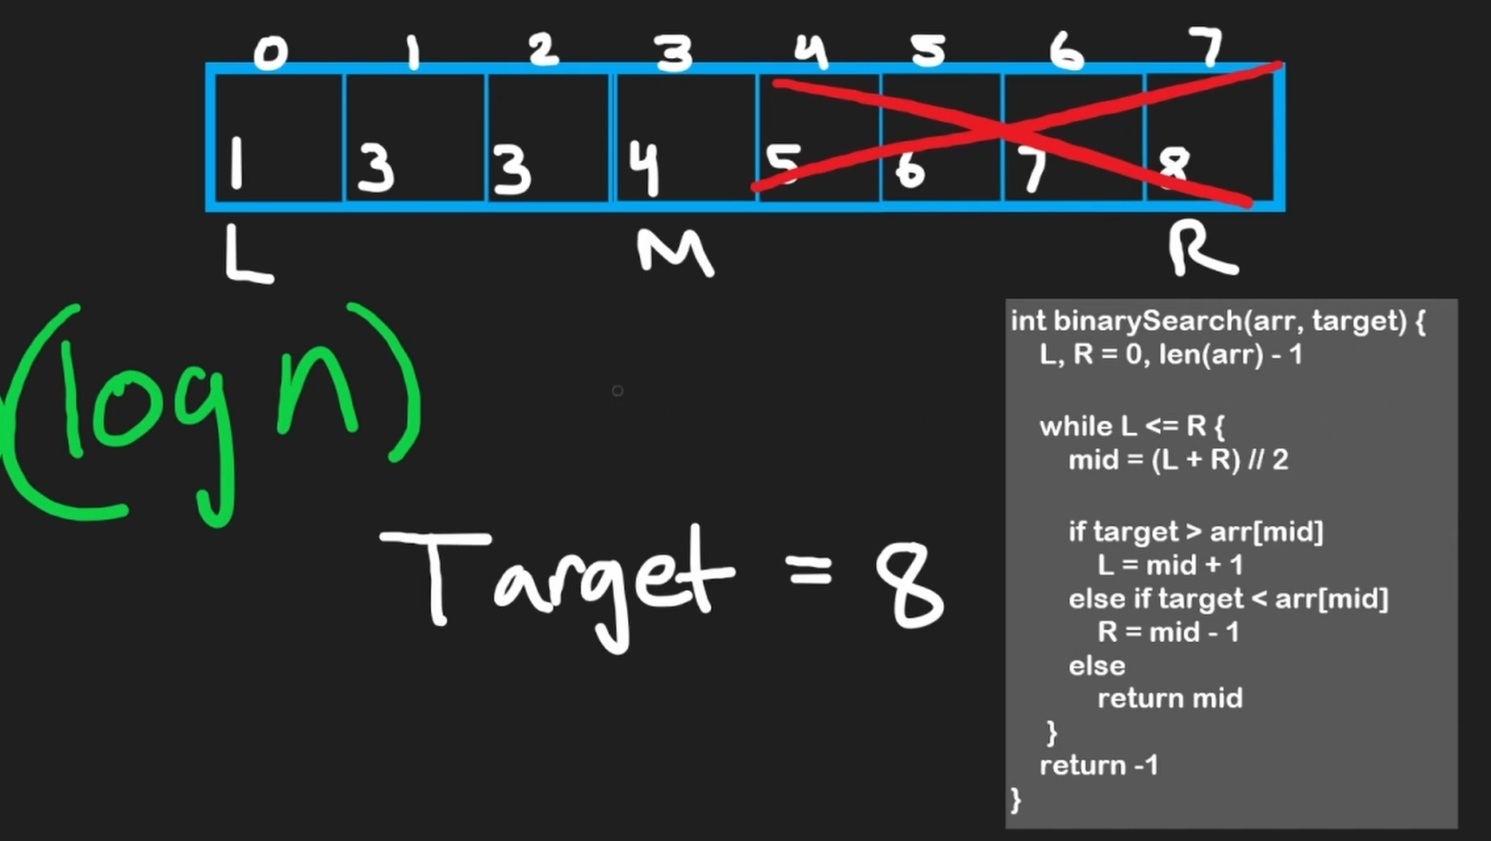 0 1 2 3 4 5 6 7
1 3 3 4 5 6 7 8
L M R
(log n)
Target = 8
int binarySearch(arr, target) {
L, R = 0, len(arr) - 1
while L <= R {
mid = (L + R) // 2
if target > arr[mid]
L = mid + 1
else if target < arr[mid]
R = mid - 1
else
return mid
}
return -1
}